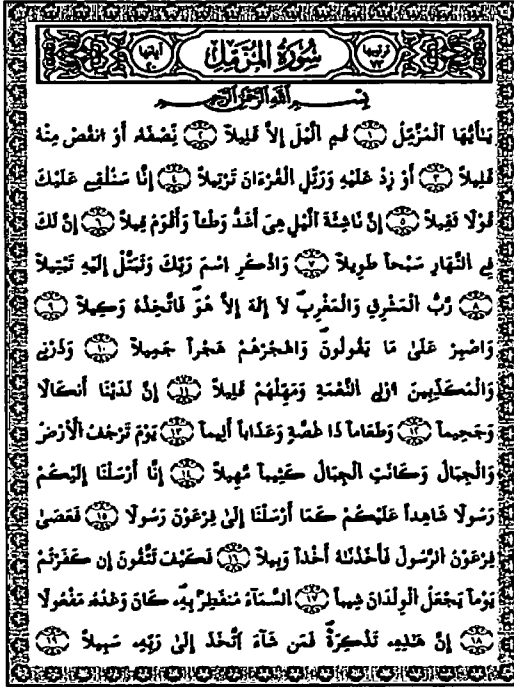 ترتيبها ٧٣ سُورَةُ الْمُزَّمِّلِ آياتها ٢٠
بِسْمِ اللَّهِ الرَّحْمَٰنِ الرَّحِيمِ
يَٰأَيُّهَا الْمُزَّمِّلُ ١ قُمِ الَّيْلَ إِلَّا قَلِيلاً ٢ نِّصْفَهُ أَوِ انقُصْ مِنْهُ
قَلِيلاً ٣ أَوْ زِدْ عَلَيْهِ وَرَتِّلِ الْقُرْءَانَ تَرْتِيلاً ٤ إِنَّا سَنُلْقِي عَلَيْكَ
قَوْلًا ثَقِيلاً ٥ إِنَّ نَاشِئَةَ الَّيْلِ هِيَ أَشَدُّ وَطْـاً وَأَقْوَمُ قِيلاً ٦ إِنَّ لَكَ
فِي النَّهَارِ سَبْحاً طَوِيلاً ٧ وَاذْكُرِ اسْمَ رَبِّكَ وَتَبَتَّلْ إِلَيْهِ تَبْتِيلاً
٨ رَّبُّ الْمَشْرِقِ وَالْمَغْرِبِ لَا إِلَٰهَ إِلَّا هُوَ فَاتَّخِذْهُ وَكِيلاً ٩
وَاصْبِرْ عَلَىٰ مَا يَقُولُونَ وَاهْجُرْهُمْ هَجْراً جَمِيلاً ١٠ وَذَرْنِي
وَالْمُكَذِّبِينَ أُوْلِي النَّعْمَةِ وَمَهِّلْهُمْ قَلِيلاً ١١ إِنَّ لَدَيْنَا أَنكَالًا
وَجَحِيماً ١٢ وَطَعَاماً ذَا غُصَّةٍ وَعَذَاباً أَلِيماً ١٣ يَوْمَ تَرْجُفُ الْأَرْضُ
وَالْجِبَالُ وَكَانَتِ الْجِبَالُ كَثِيباً مَّهِيلاً ١٤ إِنَّا أَرْسَلْنَا إِلَيْكُمْ
رَسُولًا شَاهِداً عَلَيْكُمْ كَمَا أَرْسَلْنَا إِلَىٰ فِرْعَوْنَ رَسُولًا ١٥ فَعَصَىٰ
فِرْعَوْنُ الرَّسُولَ فَأَخَذْنَٰهُ أَخْذاً وَبِيلاً ١٦ فَكَيْفَ تَتَّقُونَ إِن كَفَرْتُمْ
يَوْماً يَجْعَلُ الْوِلْدَانَ شِيباً ١٧ السَّمَآءُ مُنفَطِرٌ بِهِ كَانَ وَعْدُهُ مَفْعُولًا
١٨ إِنَّ هَٰذِهِ تَذْكِرَةٌ فَمَن شَآءَ اتَّخَذَ إِلَىٰ رَبِّهِ سَبِيلاً ١٩